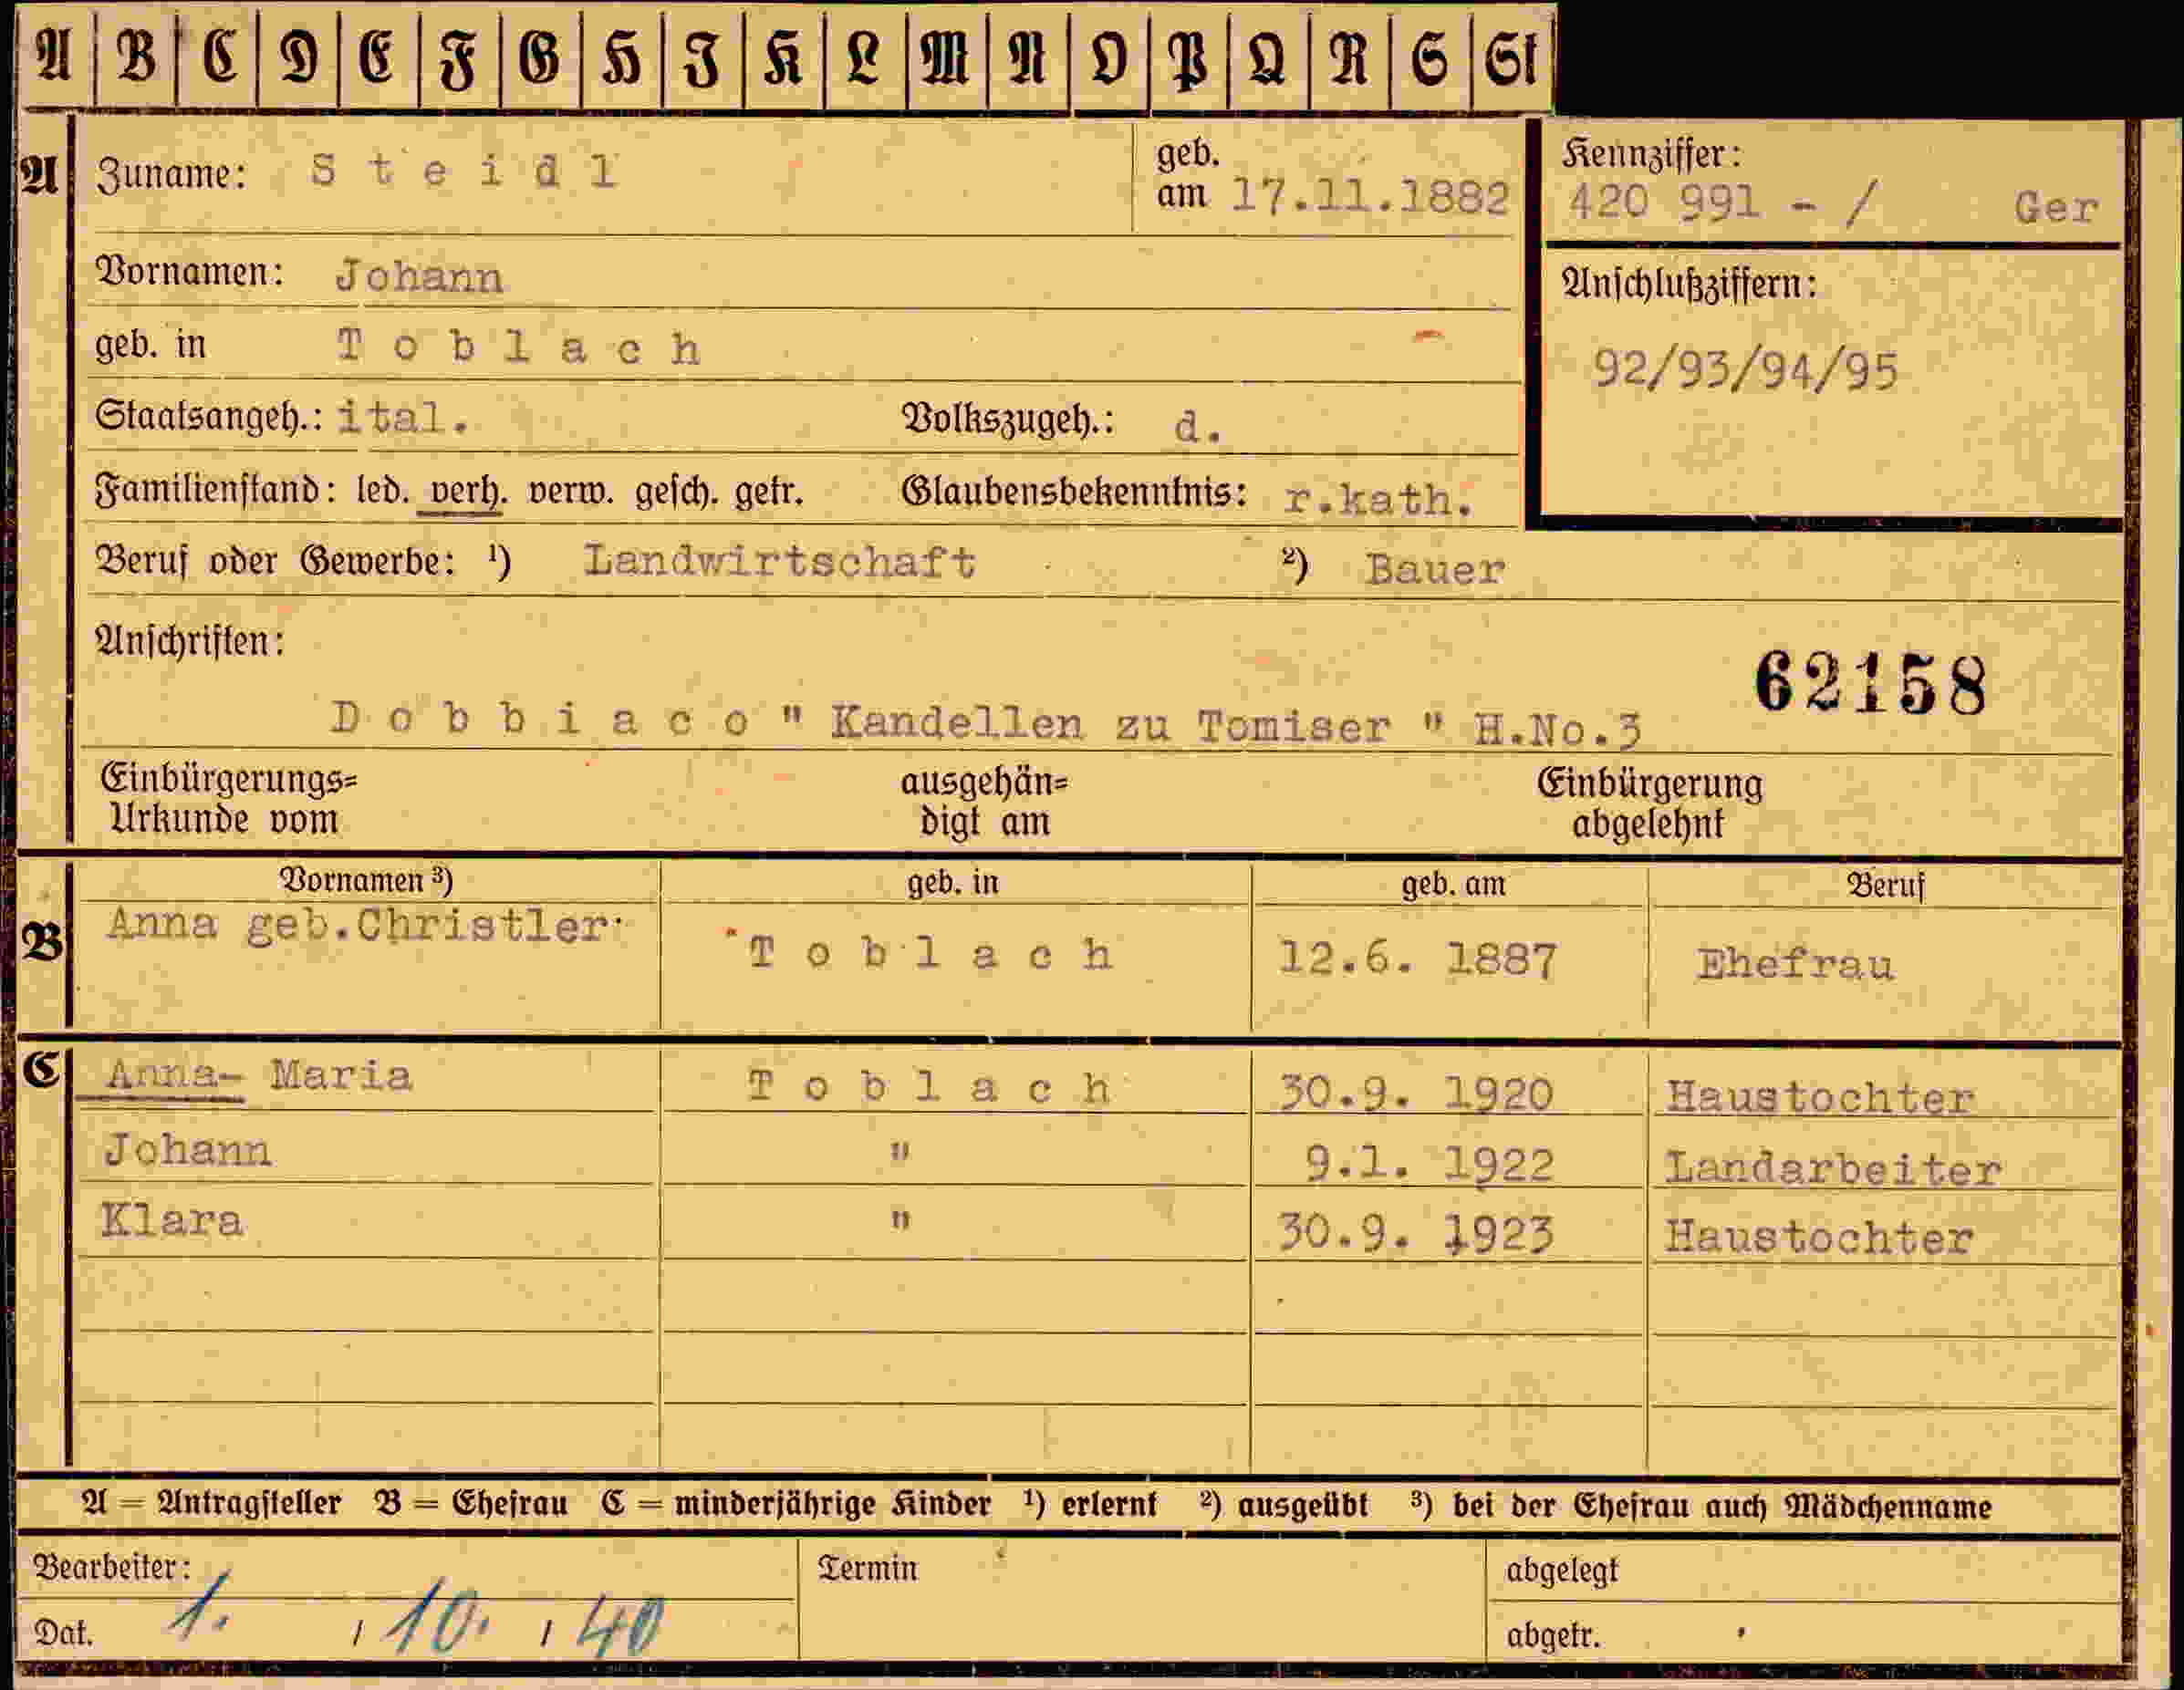 A B C D E F G H I K L M N O P Q R S St
A Zuname: S t e i d l geb. am 17.11.1882
Kennziffer:
420 991 - / Ger
Vornamen: Johann
geb. in T o b l a c h
Anschlußziffern:
92/93/94/95
Staatsangeh.: ital. Volkszugeh.: d.
Familienstand: led. verh. verw. gesch. getr. Glaubensbekenntnis: r.kath.
Beruf oder Gewerbe: ¹) Landwirtschaft ²) Bauer
Anschriften:
62158
D o b b i a c o " Kandellen zu Tomiser " H.No.3
Einbürgerungs= ausgehän= Einbürgerung
Urkunde vom digt am abgelehnt
Vornamen ³) geb. in geb. am Beruf
B Anna geb.Christler T o b l a c h 12.6. 1887 Ehefrau
C Anna- Maria T o b l a c h 30.9. 1920 Haustochter
Johann " 9.1. 1922 Landarbeiter
Klara " 30.9. 1923 Haustochter
A = Antragsteller B = Ehefrau C = minderjährige Kinder ¹) erlernt ²) ausgeübt ³) bei der Ehefrau auch Mädchenname
Bearbeiter: Termin abgelegt
Dat. 1. / 10. / 40 abgetr.